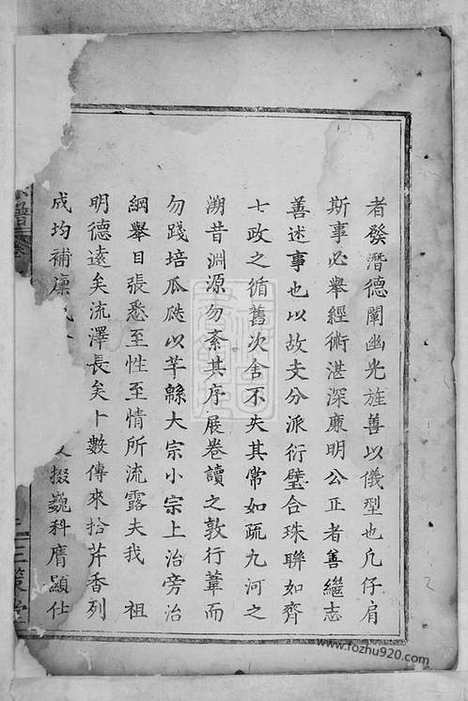 者發潛德闡幽光旌善以儀型也凢仔肩
斯事必舉經術湛深廉明公正者善繼志
善述事也以故支分派衍璧合珠聯如齊
七政之循舊次舍不失其常如疏九河之
溯昔淵源勿紊其序展卷讀之敦行葦而
勿踐培瓜瓞以芊緜大宗小宗上治旁治
綱舉目張悉至性至情所流露夫我 祖
明德遠矣流澤長矣卜數傳來拾芹香列
成均補廩 掇巍科膺顯仕
譜
三策堂
www.fozhu920.com